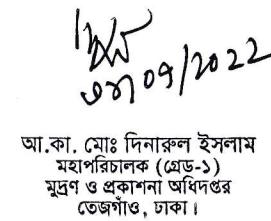 ০৭/2022
আ.কা. মোঃ দিনারুল ইসলাম
মহাপরিচালক (গ্রেড-১)
মুদ্রণ ও প্রকাশনা অধিদপ্তর
তেজগাঁও, ঢাকা।